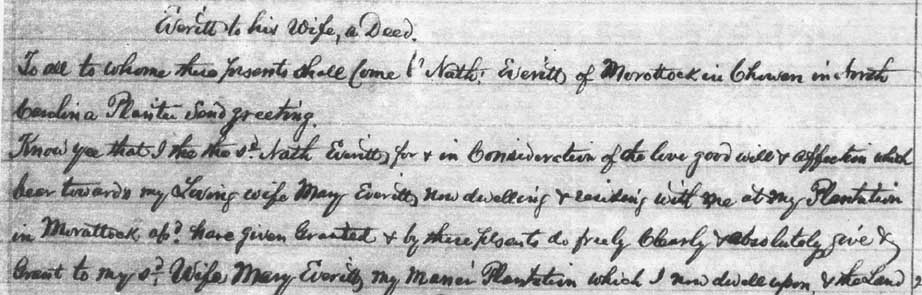 Everitt to his Wife, a Deed.
To all to whome these psents shall Come &c Nath: Everitt of Morottock in Chowan in North
Carolina Planter Send greeting.
Know yee that I the the sd. Nath Everitt for & in Consideration of the love good will & affection which
bear towards my Loving wife Mary Everitt now dwelling & residing with me at my Plantation
in Morattock afd. have given Granted & by these psents do freely Clearly & absolutely give &
Grant to my sd. Wife Mary Everitt my Manner Plantation which I now dwell upon, & the Land